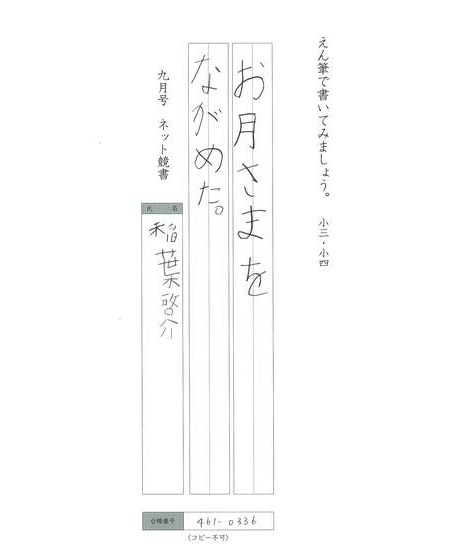 えん筆で書いてみましょう。 小三・小四
お月さまを
ながめた。
九月号 ネット競書
氏 名
稲葉啓介
台帳番号 461-0336
(コピー不可)